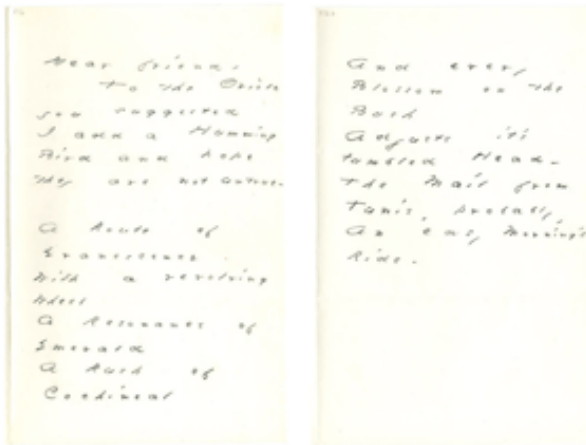 Dear friend.
To the Oriole
you suggested
I add a Humming
Bird and hope
they are not untrue -
A Route of
Evanescence
With a revolving
Wheel
A Resonance of
Emerald
A Rush of
Cochineal
And every
Blossom on the
Bush
Adjusts it's
tumbled Head -
The Mail from
Tunis, probably,
An easy Morning's
Ride.